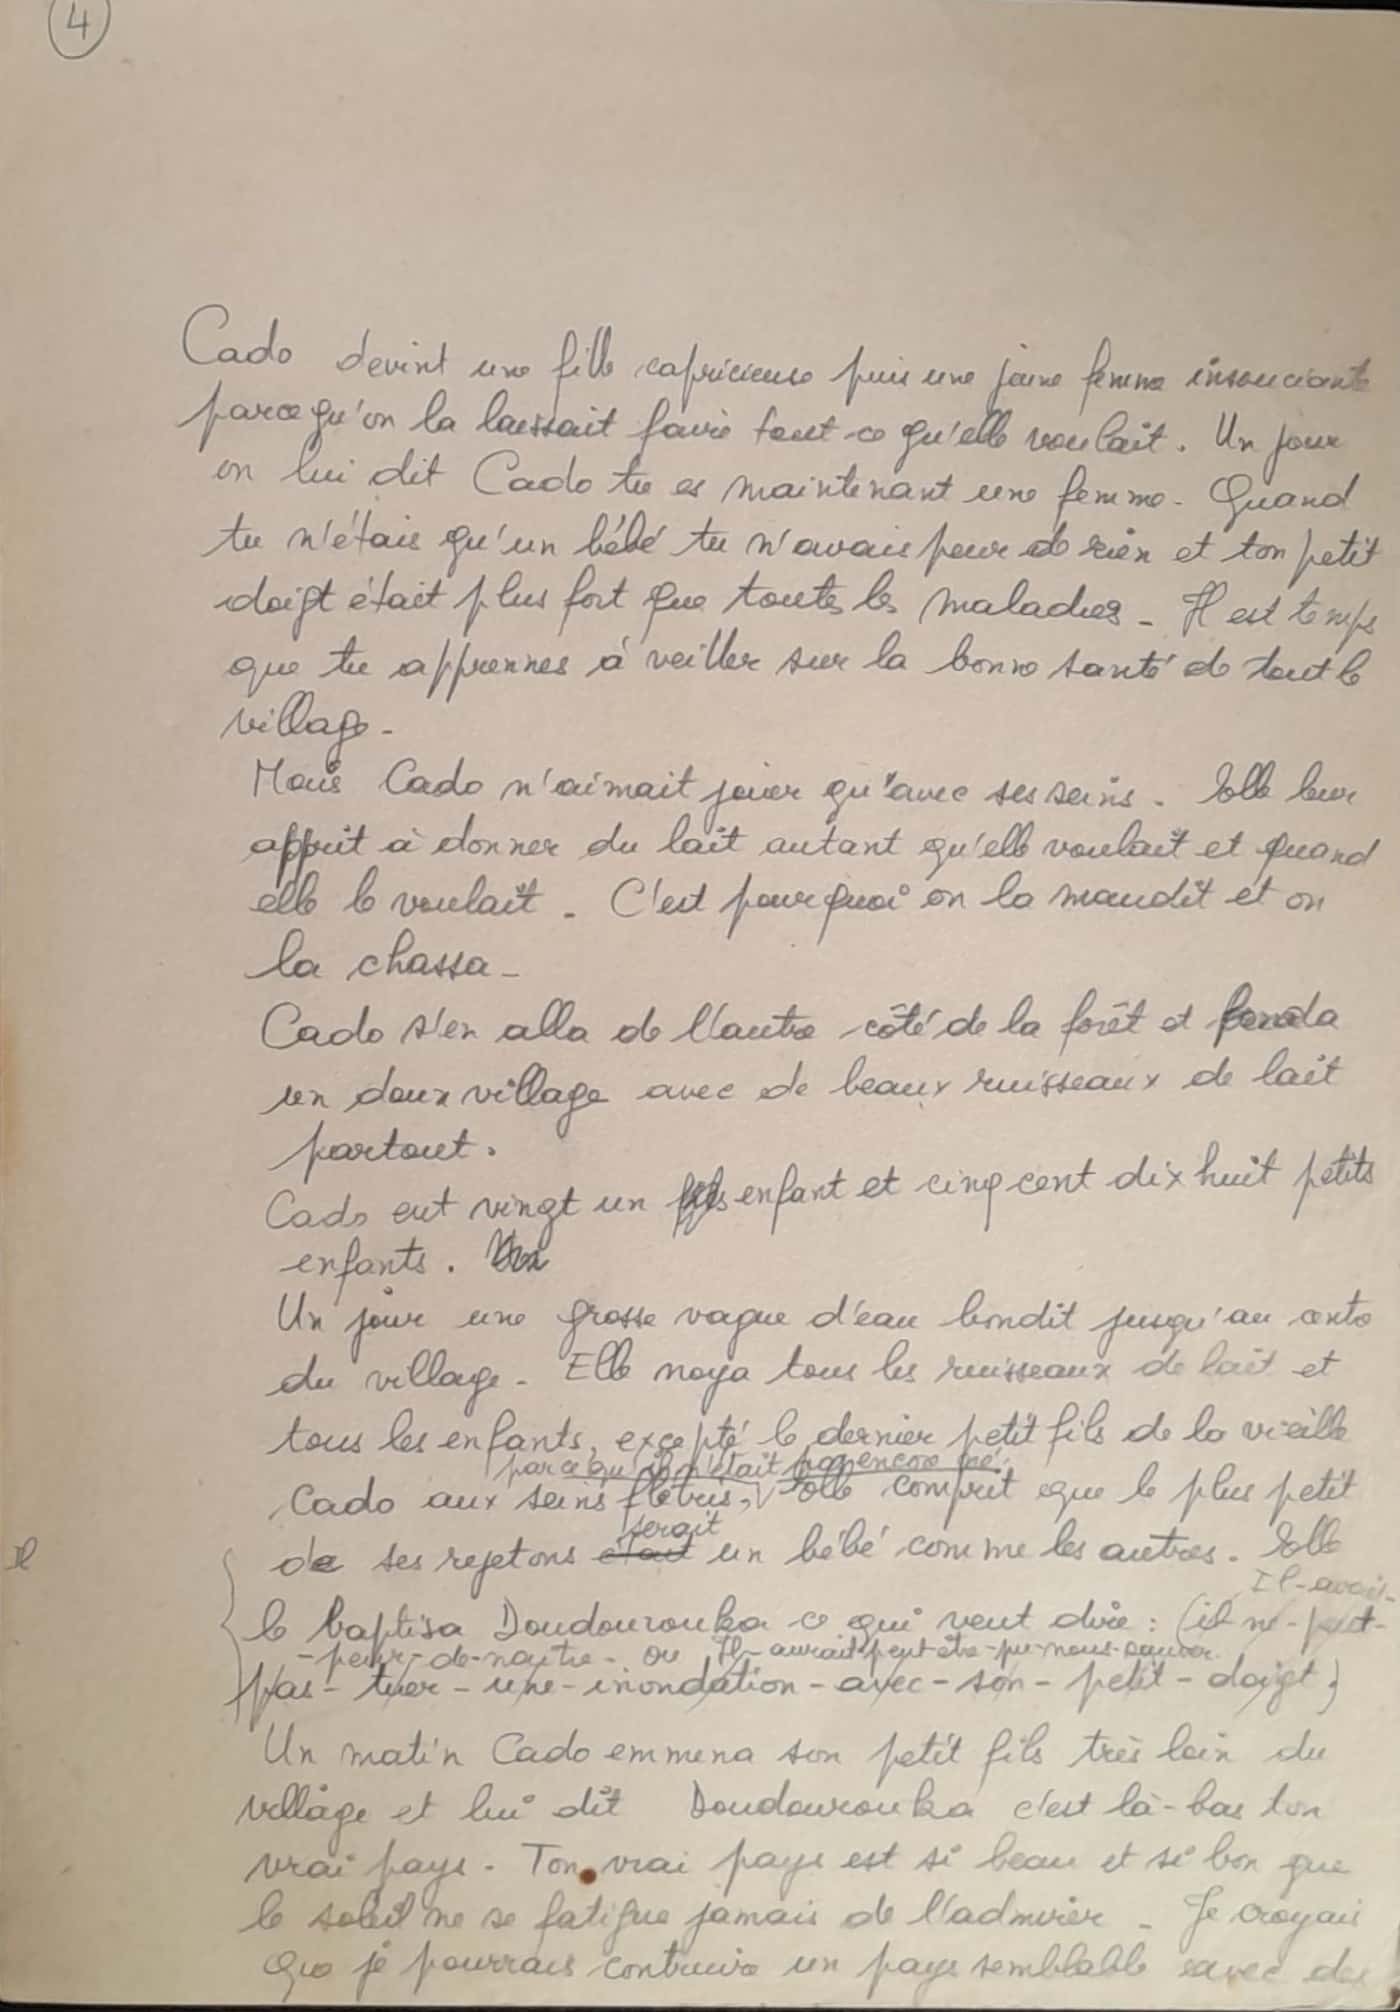 4
Cado devint une fille capricieuse puis une jeune femme insouciante
parce qu'on la laissait faire tout ce qu'elle voulait. Un jour
on lui dit Cado tu es maintenant une femme - Quand
tu n'étais qu'un bébé tu n'avais peur de rien et ton petit
doigt était plus fort que toutes les maladies - Il est temps
que tu apprennes à veiller sur la bonne santé de tout le
village -
Mais Cado n'aimait jouer qu'avec ses seins. Elle leur
apprit à donner du lait autant qu'elle voulait et quand
elle le voulait. C'est pourquoi on la maudit et on
la chassa -
Cado s'en alla de l'autre côté de la forêt et fonda
un doux village avec de beaux ruisseaux de lait
partout.
Cado eut vingt un enfant et cinq cent dix huit petits
enfants.
Un jour une grosse vague d'eau bondit jusqu'au centre
du village - Elle noya tous les ruisseaux de lait et
tous les enfants, excepté le dernier petit fils de la vieille
parce qu'il n'était pas encore né.
Cado aux seins flétris, Elle comprit que le plus petit
serait
de ses rejetons était un bébé comme les autres. Elle
Il-avait-
le baptisa Doudourouka ce qui veut dire : (il-ne-peut-
-peur-de-naître- ou Il-aurait-peut-être-pu-nous-sauver.
pas-tuer-une-inondation-avec-son-petit-doigt)
Un matin Cado emmena son petit fils très loin du
village et lui dit Doudourouka c'est là-bas ton
vrai pays - Ton vrai pays est si beau et si bon que
le soleil ne se fatigue jamais de l'admirer - Je croyais
que je pourrais contruire un pays semblable avec des